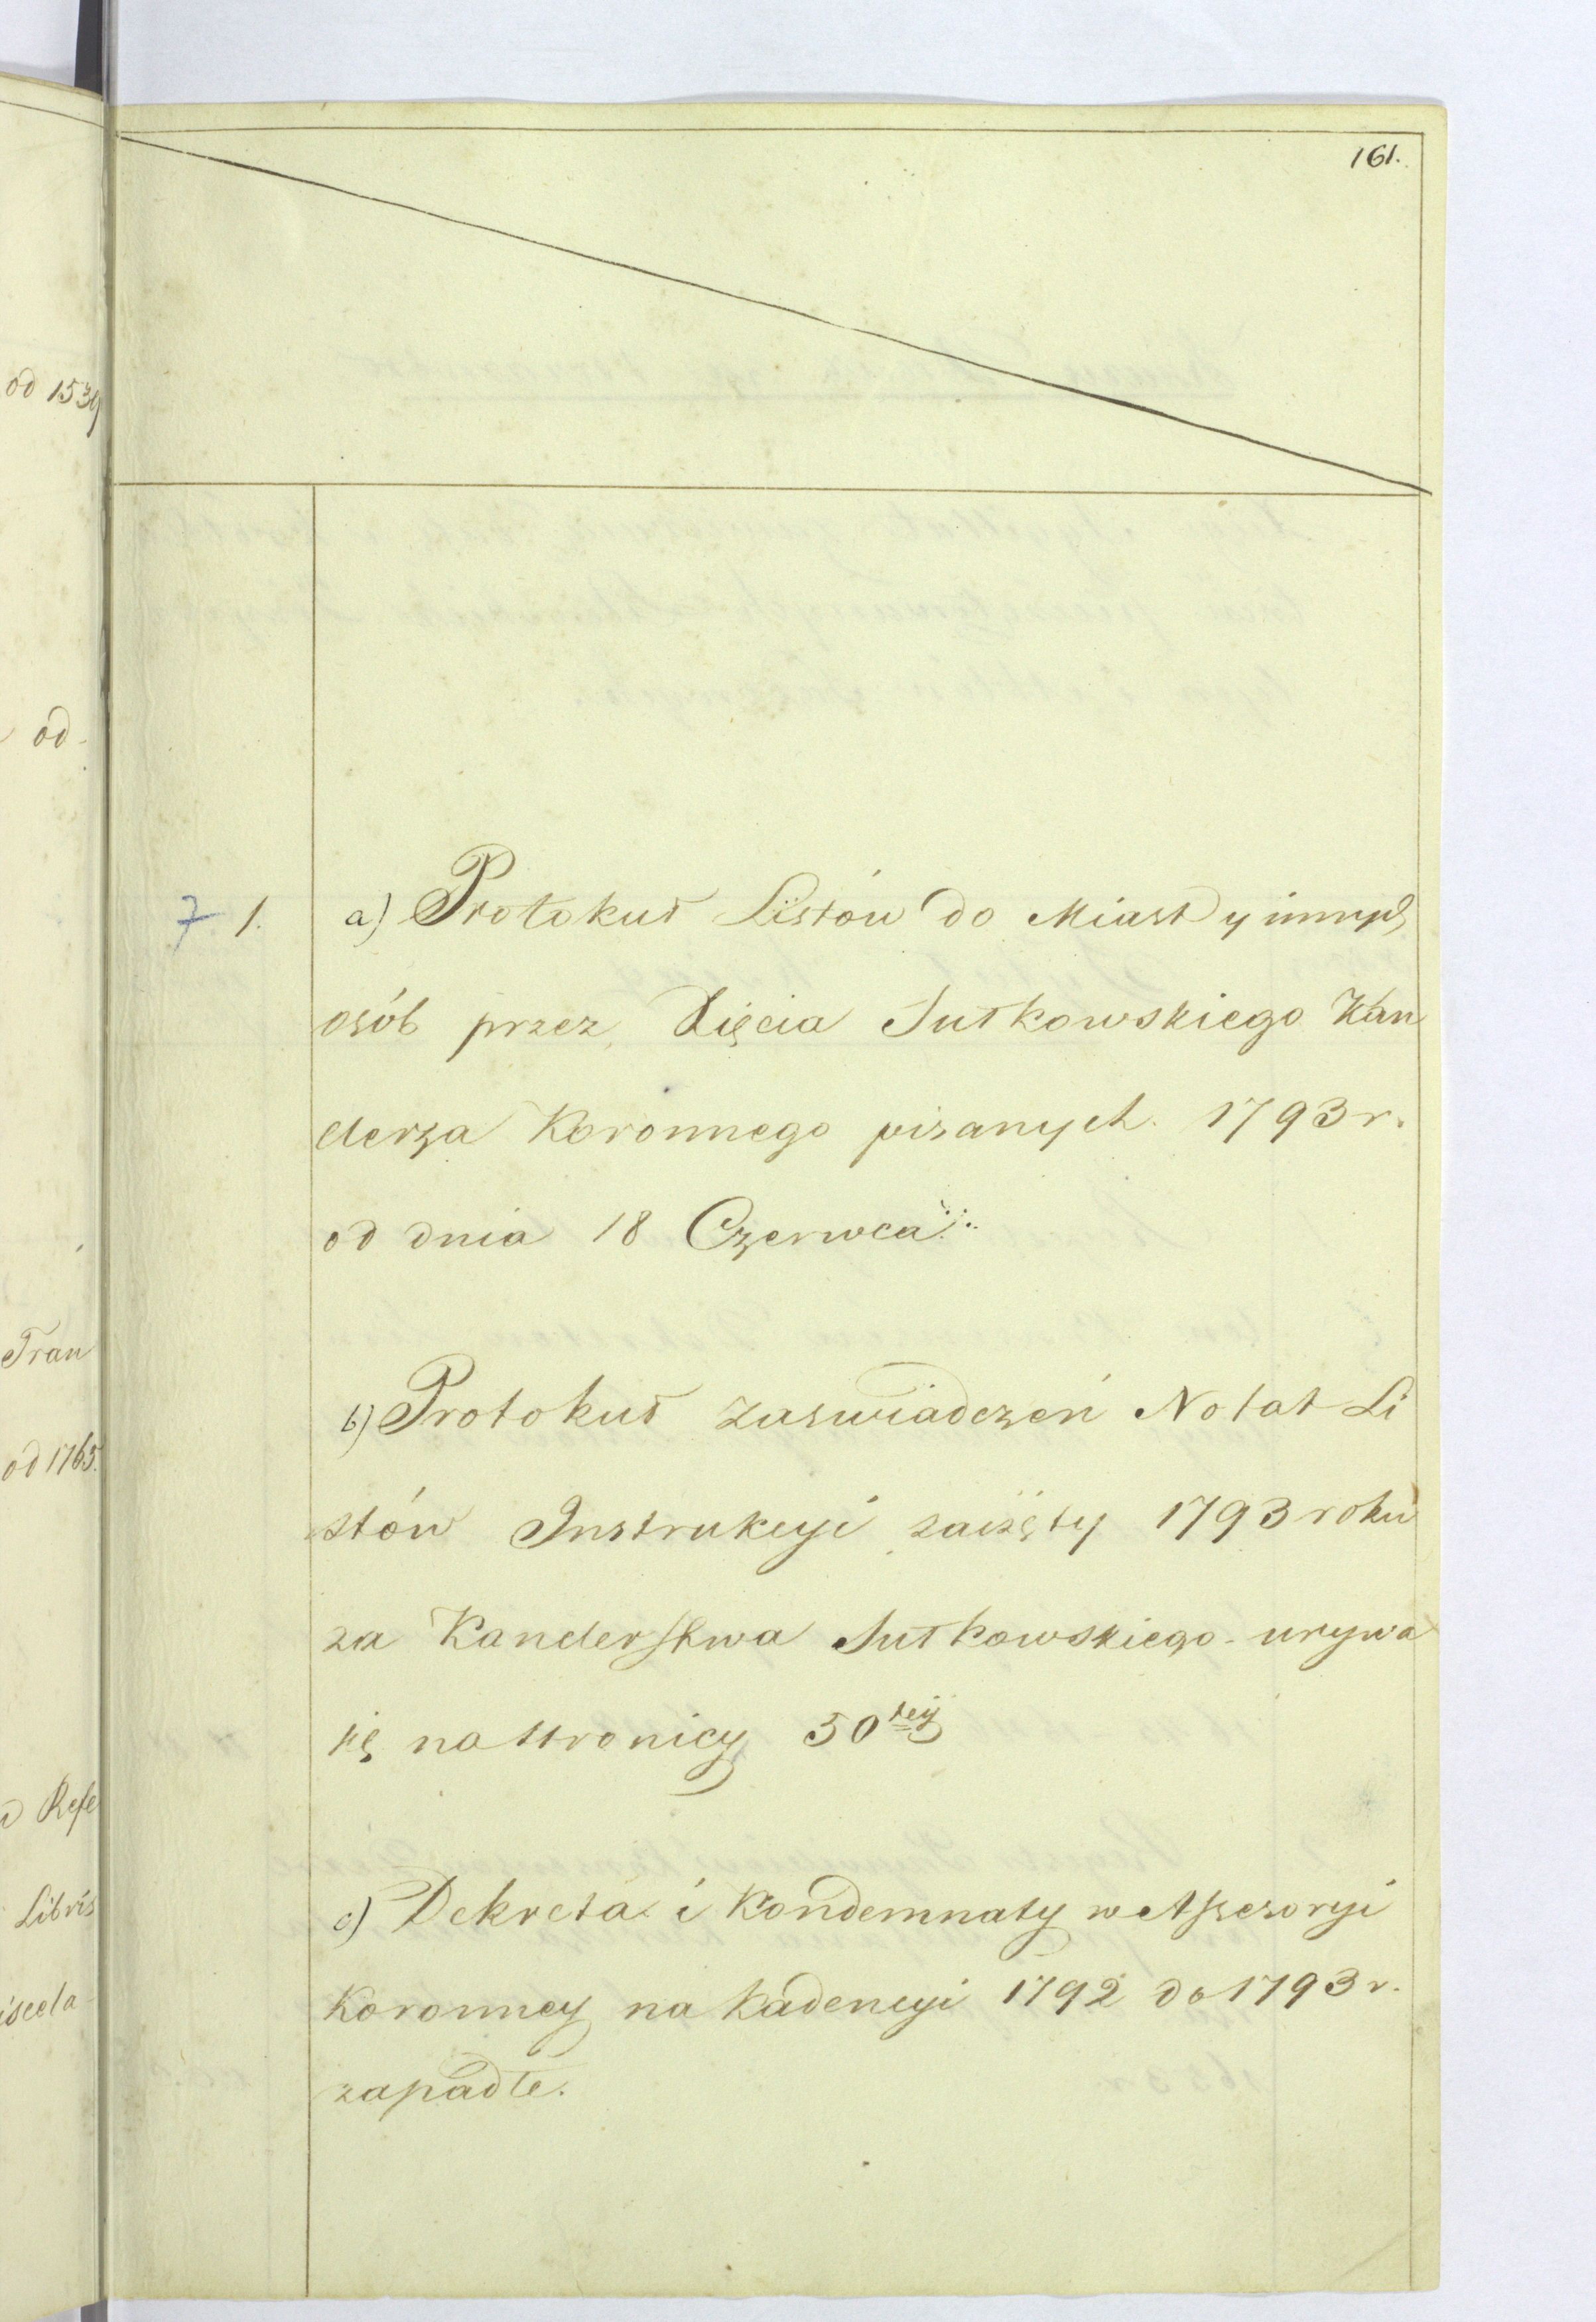 161.
od 1539
od
7 1. a) Protokuł Listów do Miast y innych
osób przez Xięcia Sułkowskiego Kan
clerza Koronnego pisanych. 1793 r.
od dnia 18 Czerwca
Tran
b) Protokuł zaswiadczeń Notat Li
od 1765.
stów Instrukcyi zaięty 1793 roku
za Kanclerstwa Sułkowskiego - urywa
się na stronicy 50tey
Refe
c) Dekreta i Kondemnaty w Assesoryi
Libris
Koronney na kadencyi 1792 do 1793 r.
iscela
zapadłe.